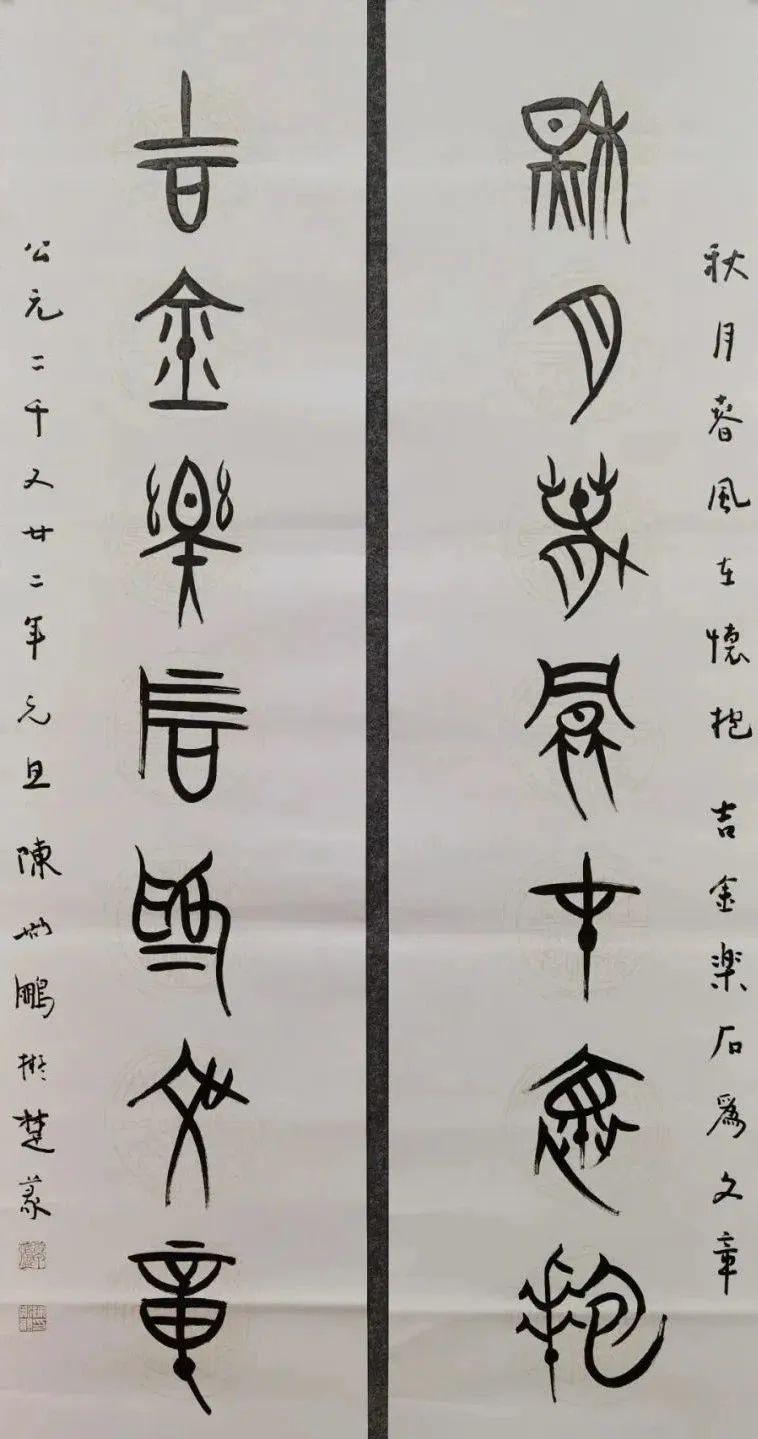 秋月春風在懷抱吉金樂石為文章
秋月春風才懷抱
吉金樂石為文章
公元二千又廿二年元旦陳世鵬擬楚篆